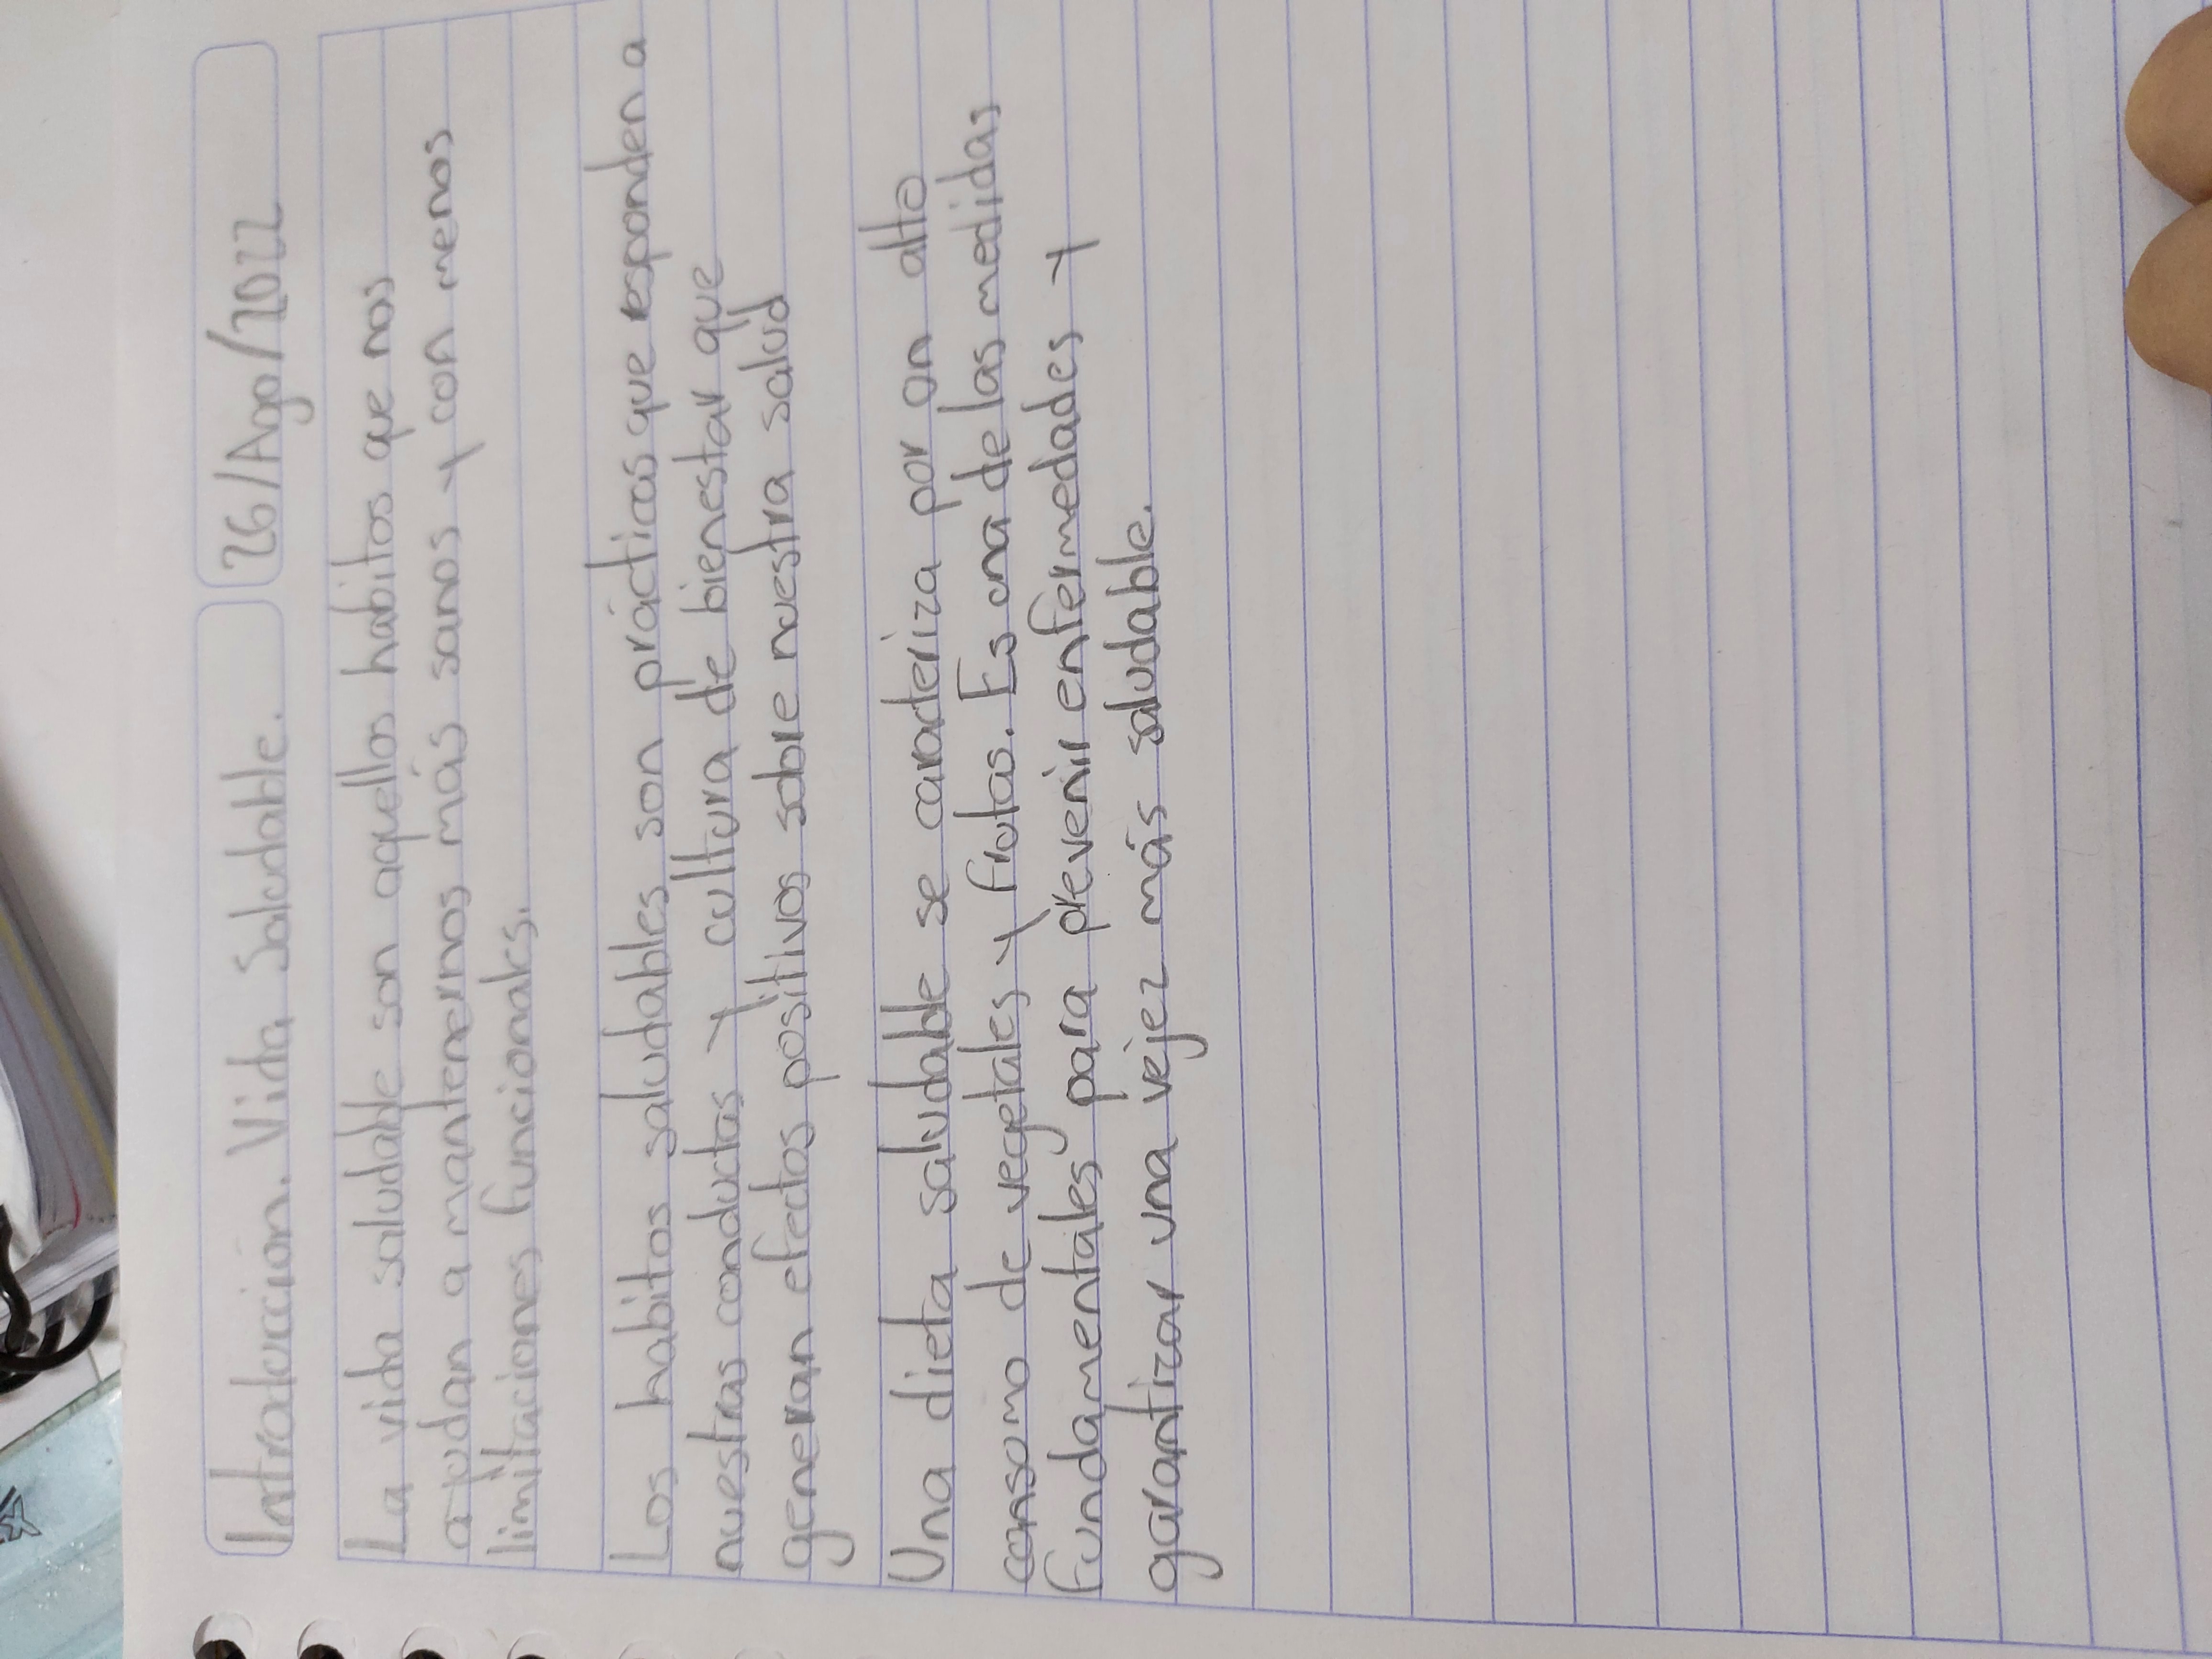 Introducción. Vida Saludable. 26/Ago/2022
La vida saludable son aquellos habitos que nos
ayudan a mantenernos más sanos y con menos
limitaciones funcionales.
Los habitos saludables son prácticas que responden a
nuestras conductas y cultura de bienestar que
generan efectos positivos sobre nuestra salud
Una dieta saludable se caracteriza por un alto
consumo de vegetales y frutas. Es una de las medidas
fundamentales para prevenir enfermedades y
garantizar una vejez más saludable.